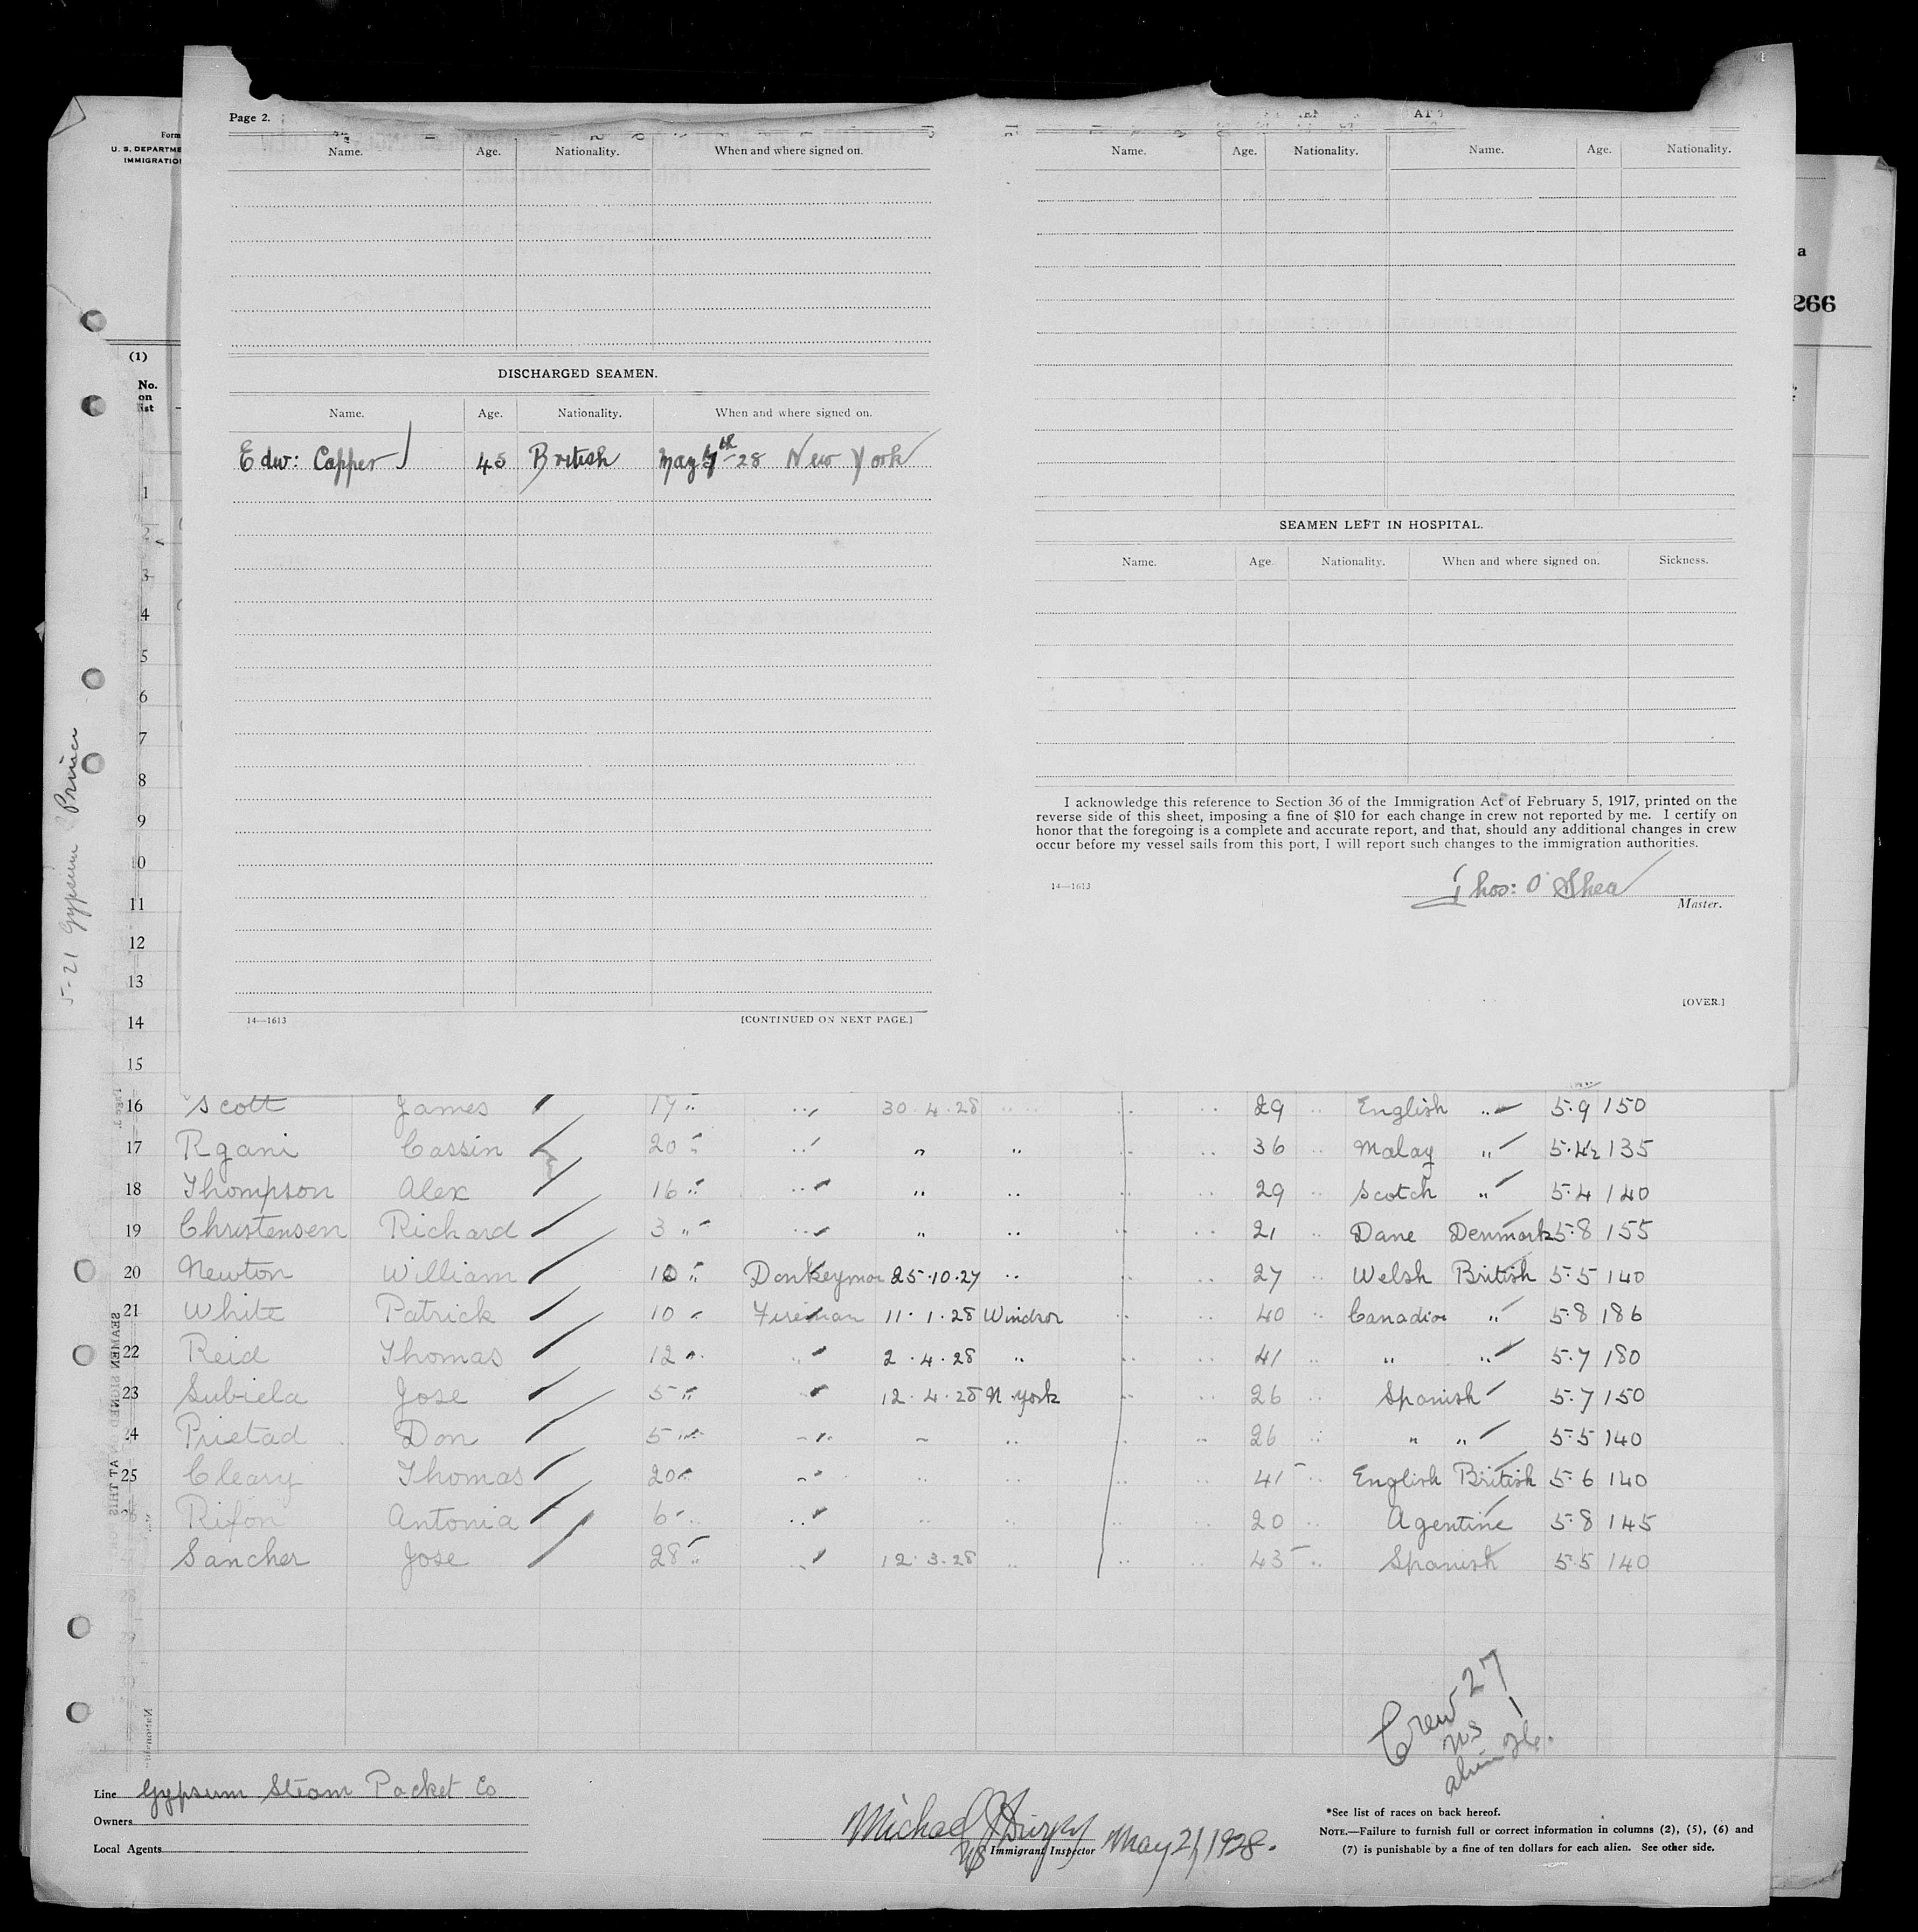 Page 2.
Form
U. S. DEPARTME
IMMIGRATIO
Name. Age. Nationality. When and where signed on.
Name. Age. Nationality. Name. Age. Nationality.
a
266
(1)
No.
on
list
DISCHARGED SEAMEN.
Name. Age. Nationality. When and where signed on.
Edw: Capper 45 British May 7th -28 New York
SEAMEN LEFT IN HOSPITAL.
Name. Age Nationality. When and where signed on. Sickness.
1
2
3
4
5
6
7
8
9
10
11
12
13
14
15
5-21 Gypsum Prince
I acknowledge this reference to Section 36 of the Immigration Act of February 5, 1917, printed on the
reverse side of this sheet, imposing a fine of $10 for each change in crew not reported by me. I certify on
honor that the foregoing is a complete and accurate report, and that, should any additional changes in crew
occur before my vessel sails from this port, I will report such changes to the immigration authorities.
14—1613
Thos: O'Shea
Master.
[OVER.]
14—1613 [CONTINUED ON NEXT PAGE.]
16 Scott James 17 " " 30.4.28 " " " " 29 " English " 5.9 150
17 Rgani Cassin 20 " " " " " " 36 " Malay " 5.4½ 135
18 Thompson Alex 16 " " " " " " 29 " Scotch " 5.4 140
19 Christensen Richard 3 " " " " " " 21 " Dane Denmark 5.8 155
20 Newton William 10 " Donkeyman 25.10.27 " " " 27 " Welsh British 5.5 140
21 White Patrick 10 " Fireman 11.1.28 Windsor " " 40 " Canadian " 5.8 186
22 Reid Thomas 12 " " 2.4.28 " " " 41 " " " 5.7 180
23 Subiela Jose 5 " " 12.4.28 N.york " " 26 " Spanish 5.7 150
24 Prietad Don 5 " " " " " " 26 " " " 5.5 140
25 Cleary Thomas 20 " " " " " " 41 " English British 5.6 140
Rifon Antonia 6 " " " " " " 20 " Agentine 5.8 145
Sancher Jose 28 " " 12.3.28 " " " 43 " Spanish 5.5 140
28
29
30
Crew 27
US 1
alien 26.
Line Gypsum Steam Packet Co
Owners
Local Agents
Michael
Immigrant Inspector May 21, 1928.
*See list of races on back hereof.
NOTE.—Failure to furnish full or correct information in columns (2), (5), (6) and
(7) is punishable by a fine of ten dollars for each alien. See other side.